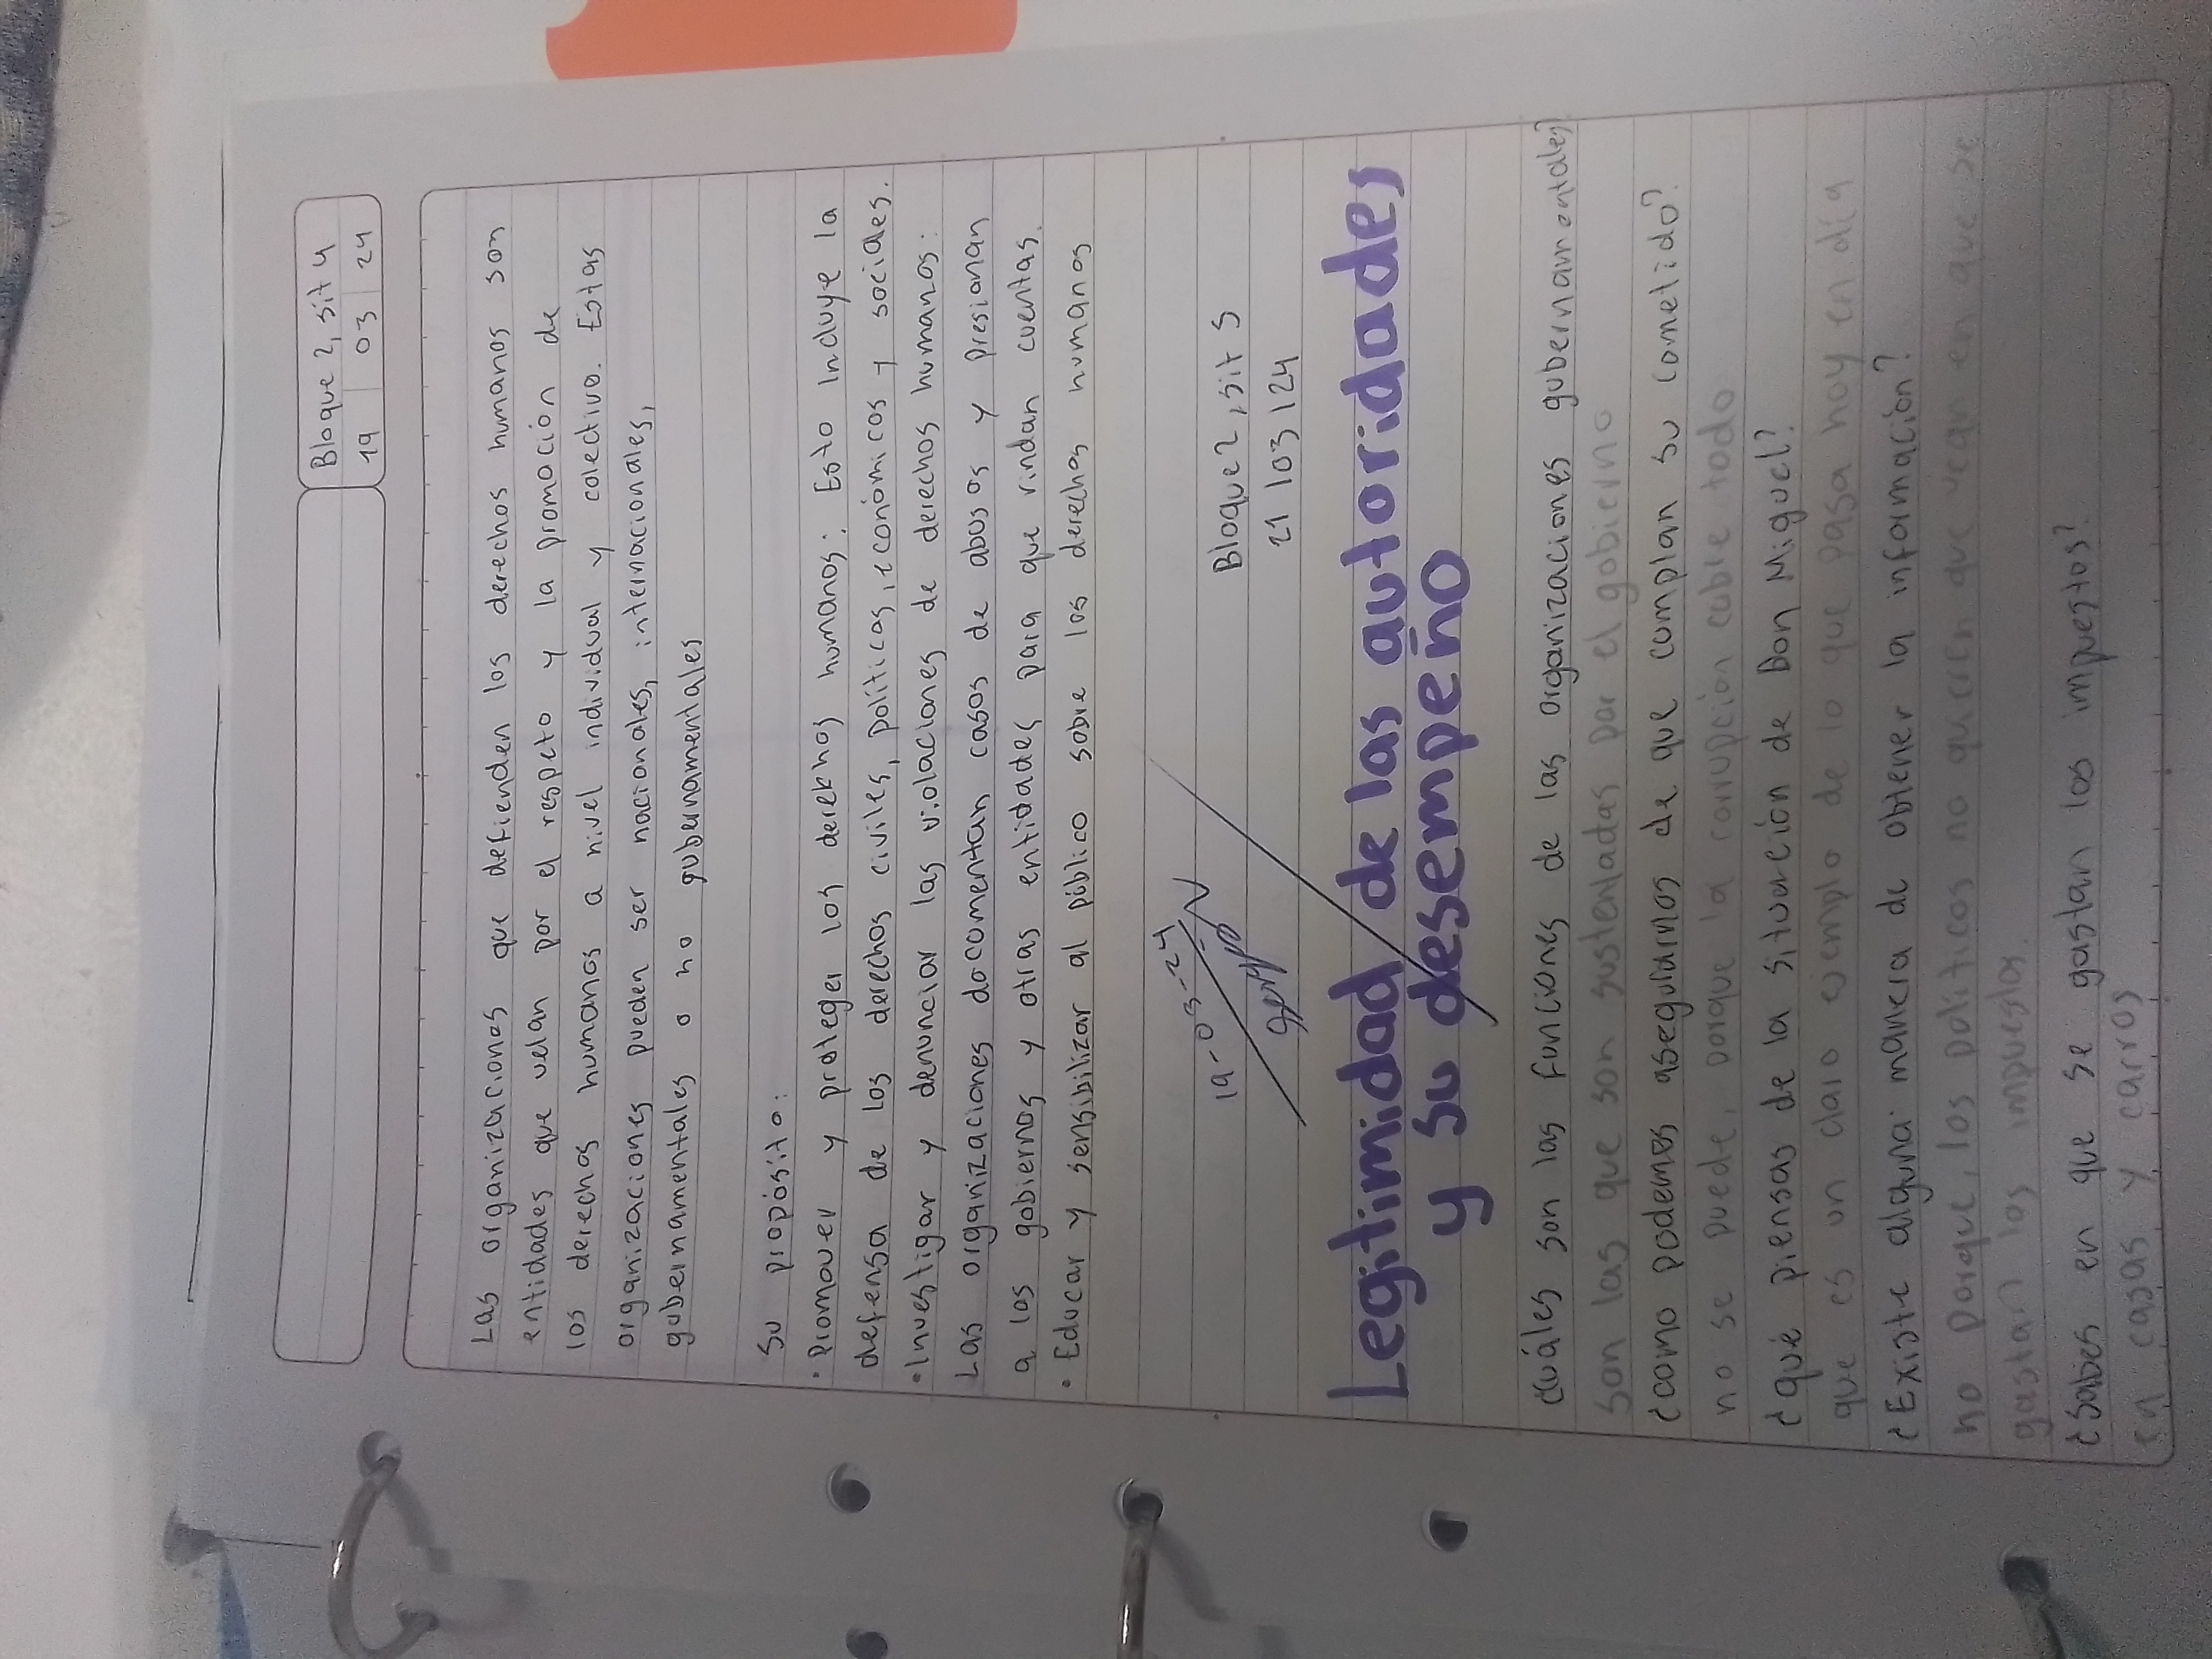 Bloque 2, sit 4
19 03 24
Las organizaciones que defienden los derechos humanos son
entidades que velan por el respeto y la promoción de
los derechos humanos a nivel individual y colectivo. Estas
organizaciones pueden ser nacionales, internacionales,
gubernamentales o no gubernamentales
Su propósito:
• Promover y proteger los derechos humanos: Esto incluye la
defensa de los derechos civiles, políticas, económicos y sociales.
• Investigar y denunciar las violaciones de derechos humanos:
Las organizaciones documentan casos de abusos y presionan
a los gobiernos y otras entidades para que rindan cuentas.
• Educar y sensibilizar al público sobre los derechos humanos
19-03-24
Bloque 2, sit 5
21 03 24
Legitimidad de las autoridades
y su desempeño
¿Cuáles son las funciones de las organizaciones gubernamentales?
Son las que son sustentadas por el gobierno
¿como podemos asegurarnos de que cumplan su cometido?
no se puede, porque la corrupción cubre todo
¿qué piensas de la situación de Don Miguel?
que es un claro ejemplo de lo que pasa hoy en día
¿Existe alguna manera de obtener la información?
no porque, los politicos no quieren que vean en que se
gastan los impuestos.
¿Sabes en que se gastan los impuestos?
en casas y carros